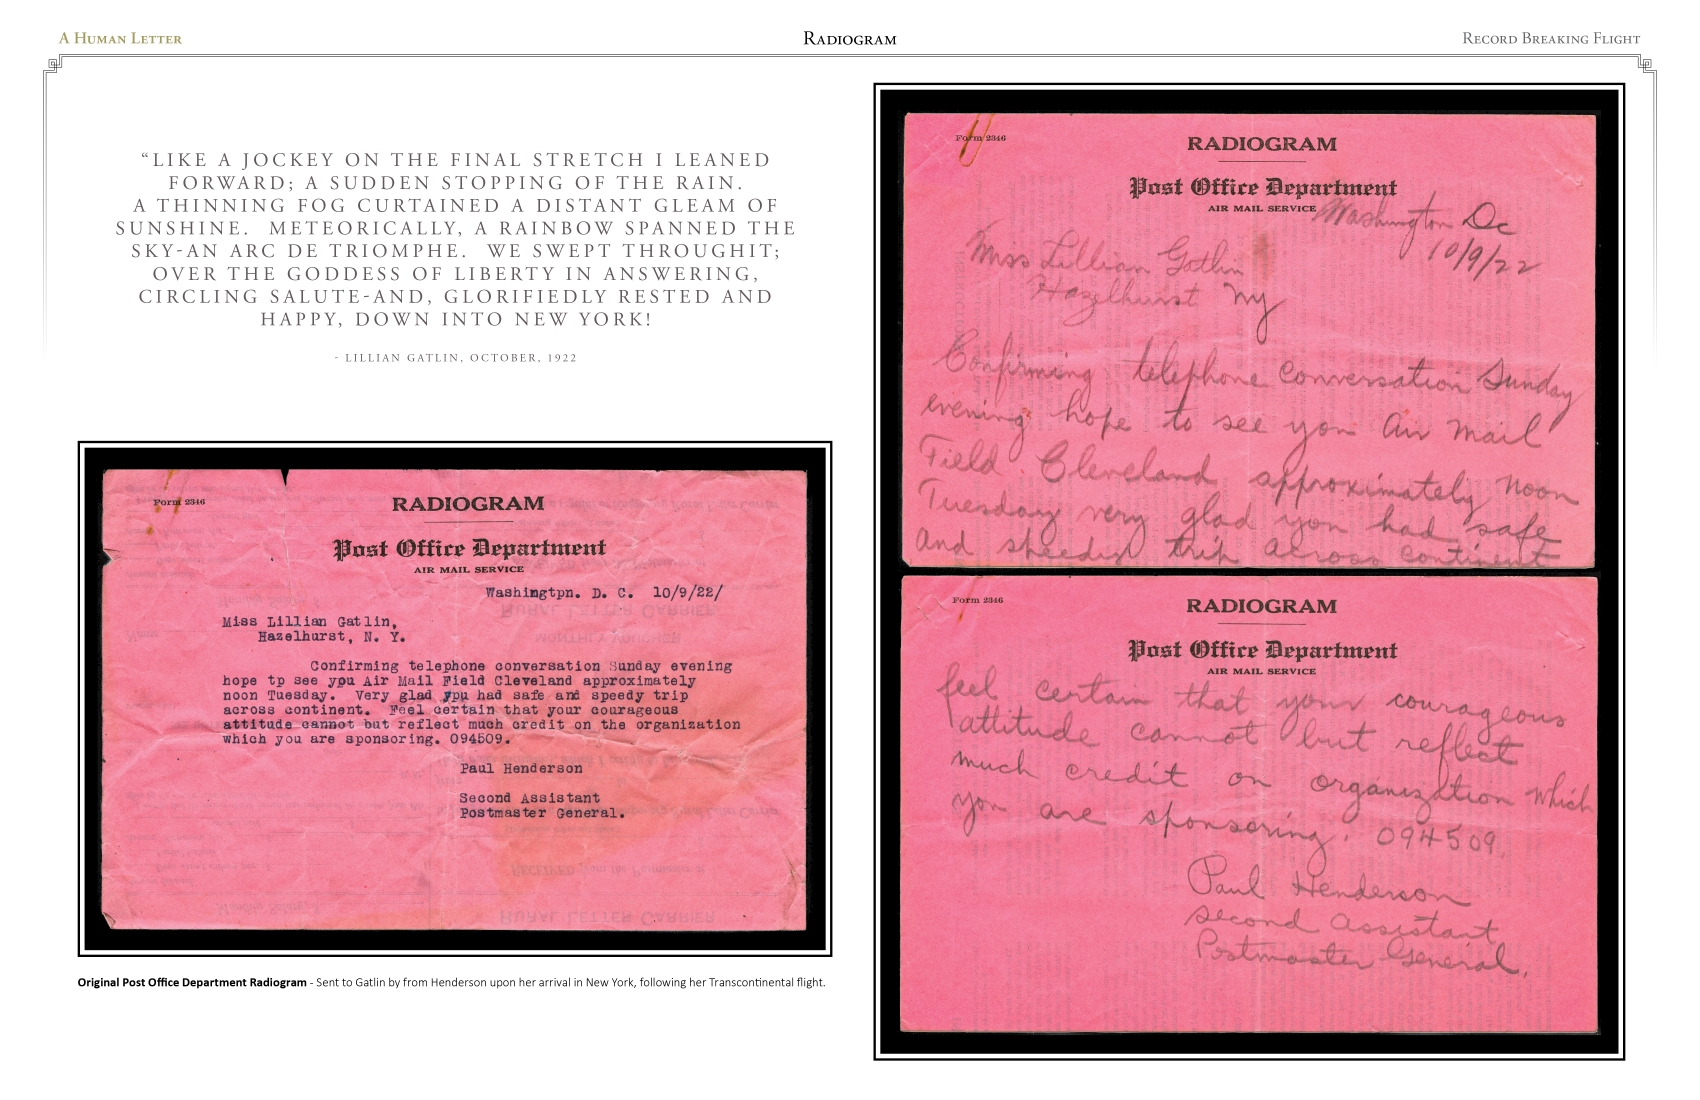 A Human Letter
Radiogram
Record Breaking Flight
“LIKE A JOCKEY ON THE FINAL STRETCH I LEANED
FORWARD; A SUDDEN STOPPING OF THE RAIN.
A THINNING FOG CURTAINED A DISTANT GLEAM OF
SUNSHINE. METEORICALLY, A RAINBOW SPANNED THE
SKY-AN ARC DE TRIOMPHE. WE SWEPT THROUGHIT;
OVER THE GODDESS OF LIBERTY IN ANSWERING,
CIRCLING SALUTE-AND, GLORIFIEDLY RESTED AND
HAPPY, DOWN INTO NEW YORK!
- LILLIAN GATLIN, OCTOBER, 1922
Form 2346
RADIOGRAM
Post Office Department
AIR MAIL SERVICE
Washingtpn. D. C. 10/9/22/
Miss Lillian Gatlin,
Hazelhurst, N. Y.
Confirming telephone conversation Sunday evening
hope tp see ypu Air Mail Field Cleveland approximately
noon Tuesday. Very glad ypu had safe and speedy trip
across continent. Feel certain that your courageous
attitude cannot but reflect much credit on the organization
which you are sponsoring. 094509.
Paul Henderson
Second Assistant
Postmaster General.
RURAL LETTER CARRIER
MONTHLY VOUCHER
RURAL LETTER CARRIER
Original Post Office Department Radiogram - Sent to Gatlin by from Henderson upon her arrival in New York, following her Transcontinental flight.
Form 2346
RADIOGRAM
Post Office Department
AIR MAIL SERVICE
Washington Dc
10/9/22
Miss Lillian Gatlin
Hazelhurst Ny
Confirming telephone conversation Sunday
evening hope to see you Air Mail
Field Cleveland approximately noon
Tuesday very glad you had safe
and speedy trip across continent
Form 2346
RADIOGRAM
Post Office Department
AIR MAIL SERVICE
feel certain that your courageous
attitude cannot but reflect
much credit on organization which
you are sponsoring. 094509.
Paul Henderson
second Assistant
Postmaster General.